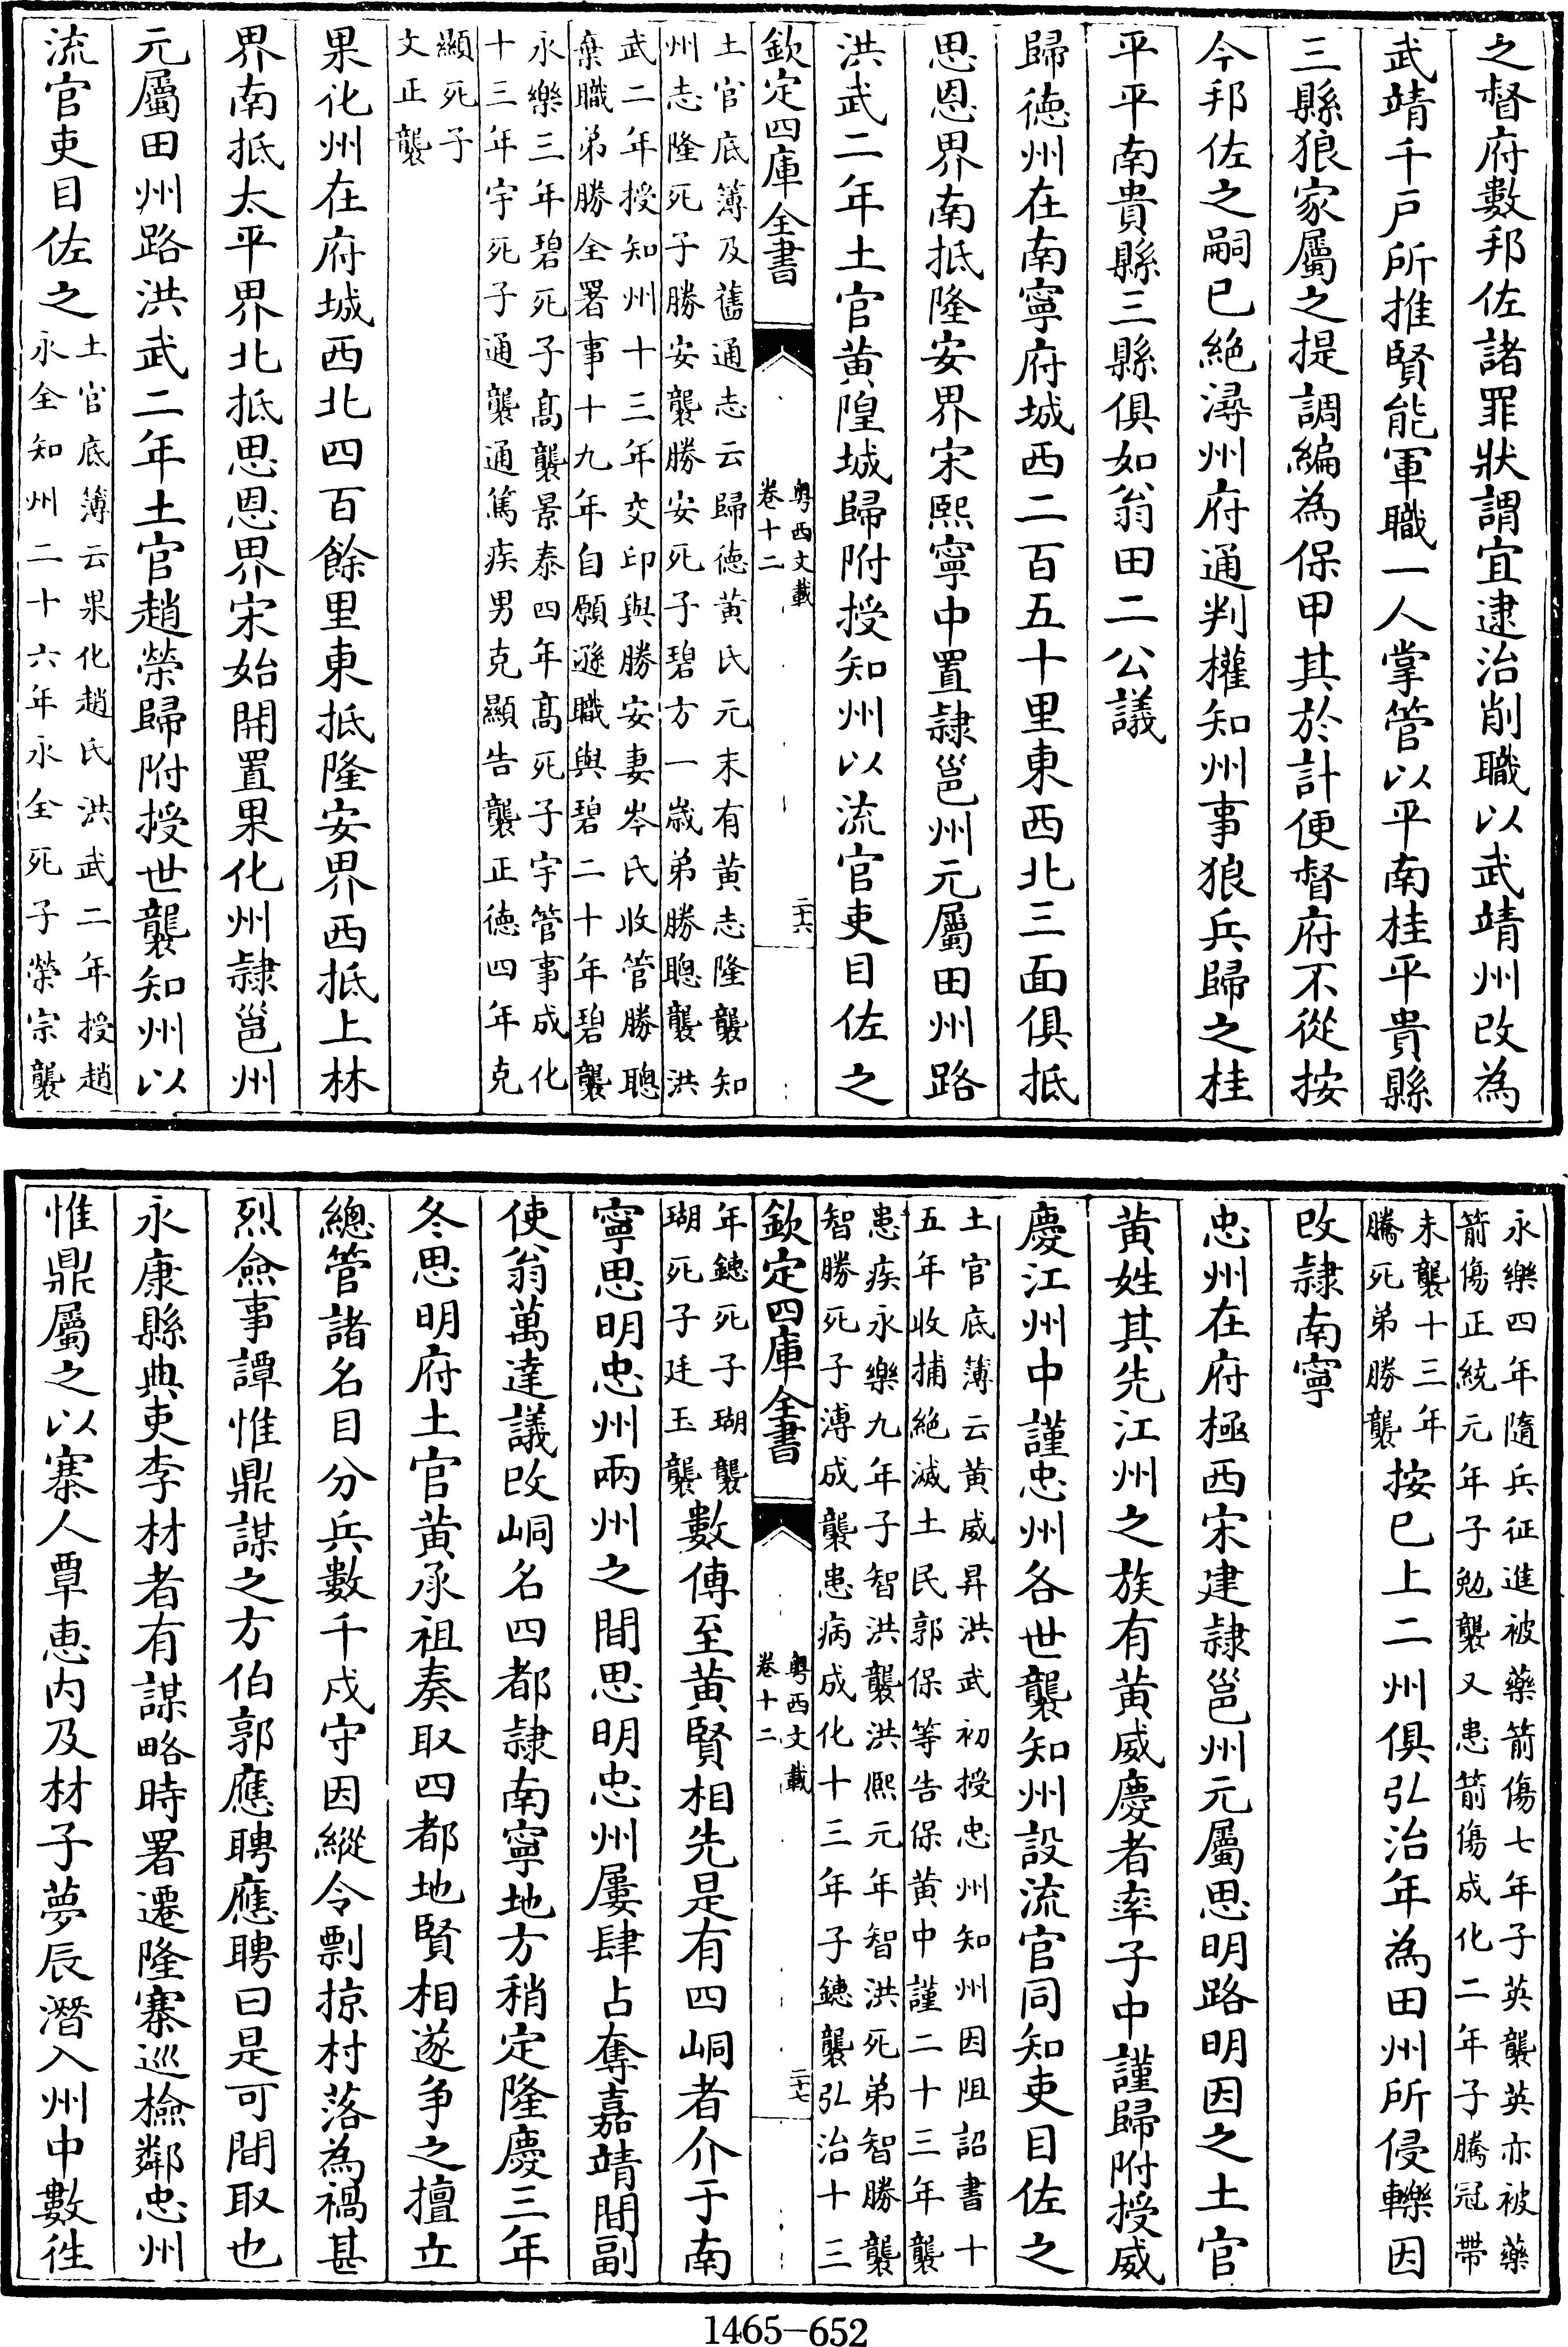 之督府數邦佐諸罪狀謂宜逮治削職以武靖州改為
武靖千戸所推賢能軍職一人掌管以平南桂平貴縣
三縣狼家屬之提調編為保甲其於計便督府不從按
今邦佐之嗣已絶潯州府通判權知州事狼兵歸之桂
平平南貴縣三縣俱如翁田二公議
歸徳州在南寧府城西二百五十里東西北三面俱抵
思恩界南抵隆安界宋熙寧中置隷邕州元屬田州路
洪武二年土官黄隍城歸附授知州以流官吏目佐之
欽定四庫全書
粤西文載
卷十二
二十六
土官底簿及舊通志云歸徳黄氏元末有黄志隆襲知
州志隆死子勝安襲勝安死子碧方一歳弟勝聰襲洪
武二年授知州十三年交印與勝安妻岑氏收管勝聰
棄職弟勝全署事十九年自願遜職與碧二十年碧襲
永樂三年碧死子髙襲景泰四年髙死子宇管事成化
十三年宇死子通襲通篤疾男克顯告襲正德四年克
顯死子
文正襲
果化州在府城西北四百餘里東抵隆安界西抵上林
界南抵太平界北抵思恩界宋始開置果化州隷邕州
元屬田州路洪武二年土官趙榮歸附授世襲知州以
流官吏目佐之
土官底簿云果化趙氏洪武二年授趙
永全知州二十六年永全死子榮宗襲
永樂四年隨兵征進被藥箭傷七年子英襲英亦被藥
箭傷正統元年子勉襲又患箭傷成化二年子騰冠帶
未襲十三年
騰死弟勝襲
按已上二州俱弘治年為田州所侵轢因
改隷南寧
忠州在府極西宋建隷邕州元屬思明路明因之土官
黄姓其先江州之族有黄威慶者率子中謹歸附授威
慶江州中謹忠州各世襲知州設流官同知吏目佐之
土官底簿云黄威昇洪武初授忠州知州因阻詔書十
五年收捕絶滅土民郭保等告保黄中謹二十三年襲
患疾永樂九年子智洪襲洪熙元年智洪死弟智勝襲
智勝死子溥成襲患病成化十三年子鏸襲弘治十三
欽定四庫全書
粤西文載
卷十二
二十七
年鏸死子瑚襲
瑚死子廷玉襲
數傳至黄賢相先是有四峒者介于南
寧思明忠州兩州之間思明忠州屢肆占奪嘉靖間副
使翁萬達議改峒名四都隷南寧地方稍定隆慶三年
冬思明府土官黄承祖奏取四都地賢相遂争之擅立
總管諸名目分兵數千戍守因縱令剽掠村落為禍甚
烈僉事譚惟鼎謀之方伯郭應聘應聘曰是可間取也
永康縣典吏李材者有謀略時署遷隆寨巡檢鄰忠州
惟鼎屬之以寨人覃恵内及材子夢辰潛入州中數徃
1465-652